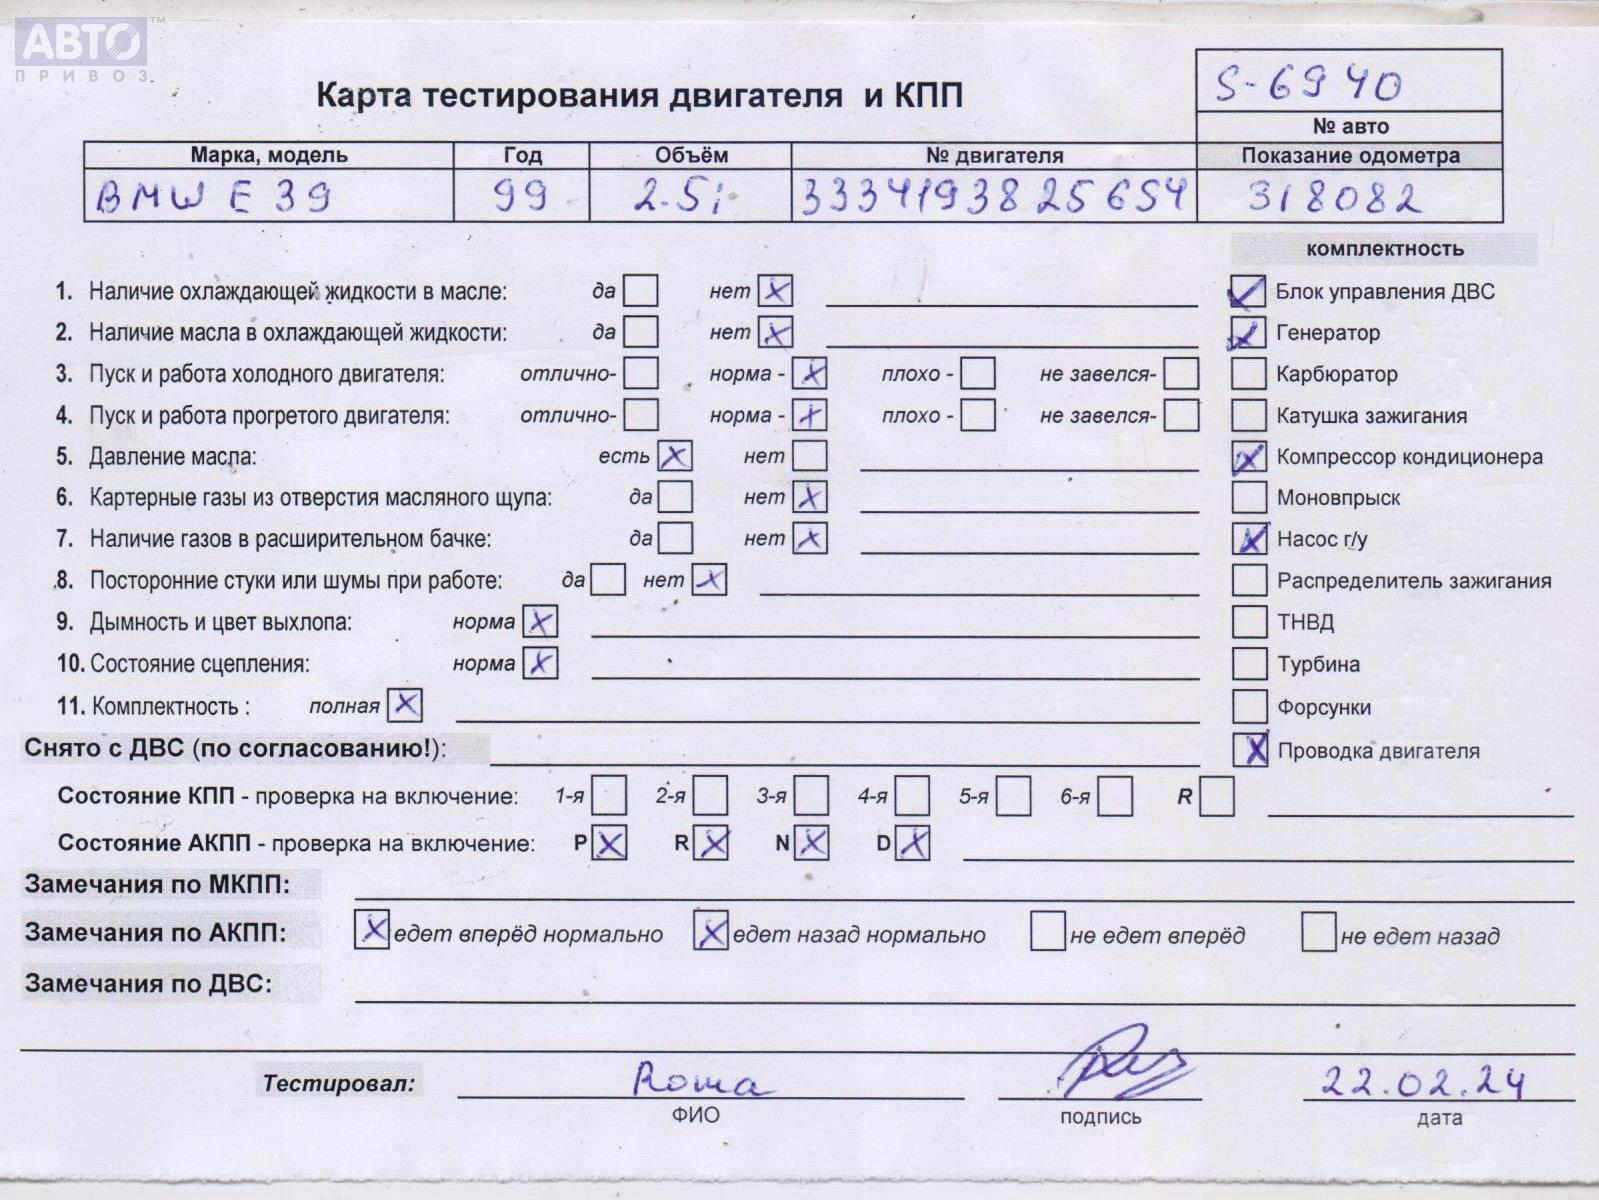 АВТО™
ПРИВОЗ
Карта тестирования двигателя и КПП
S-6940
№ авто
Марка, модель Год Объём № двигателя Показание одометра
BMW E 39 99 2.5i 33341938 25 6S4 318082
комплектность
1. Наличие охлаждающей жидкости в масле: да нет X Блок управления ДВС
2. Наличие масла в охлаждающей жидкости: да нет X Генератор
3. Пуск и работа холодного двигателя: отлично- норма - X плохо - не завелся- Карбюратор
4. Пуск и работа прогретого двигателя: отлично- норма - X плохо - не завелся- Катушка зажигания
5. Давление масла: есть X нет X Компрессор кондиционера
6. Картерные газы из отверстия масляного щупа: да нет X Моновпрыск
7. Наличие газов в расширительном бачке: да нет X X Насос г/у
8. Посторонние стуки или шумы при работе: да нет X Распределитель зажигания
9. Дымность и цвет выхлопа: норма X ТНВД
10. Состояние сцепления: норма X Турбина
11. Комплектность : полная X Форсунки
Снято с ДВС (по согласованию!): X Проводка двигателя
Состояние КПП - проверка на включение: 1-я 2-я 3-я 4-я 5-я 6-я R
Состояние АКПП - проверка на включение: P X R X N X D X
Замечания по МКПП:
Замечания по АКПП: X едет вперёд нормально X едет назад нормально не едет вперёд не едет назад
Замечания по ДВС:
Тестировал: Roma 22.02.24
ФИО подпись дата